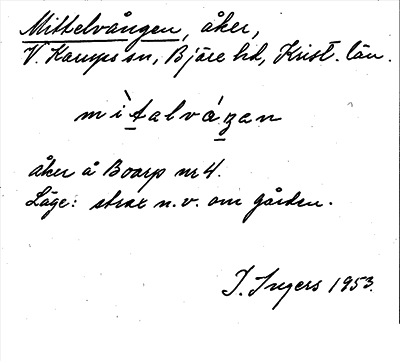 Mittelvången, åker,
V. Karups sn, Bjäre hd, Krist. län.
mìtalváŋen
åker å Boarp nr 4.
Läge: strax n.v. om gården.
I. Ingers 1953.